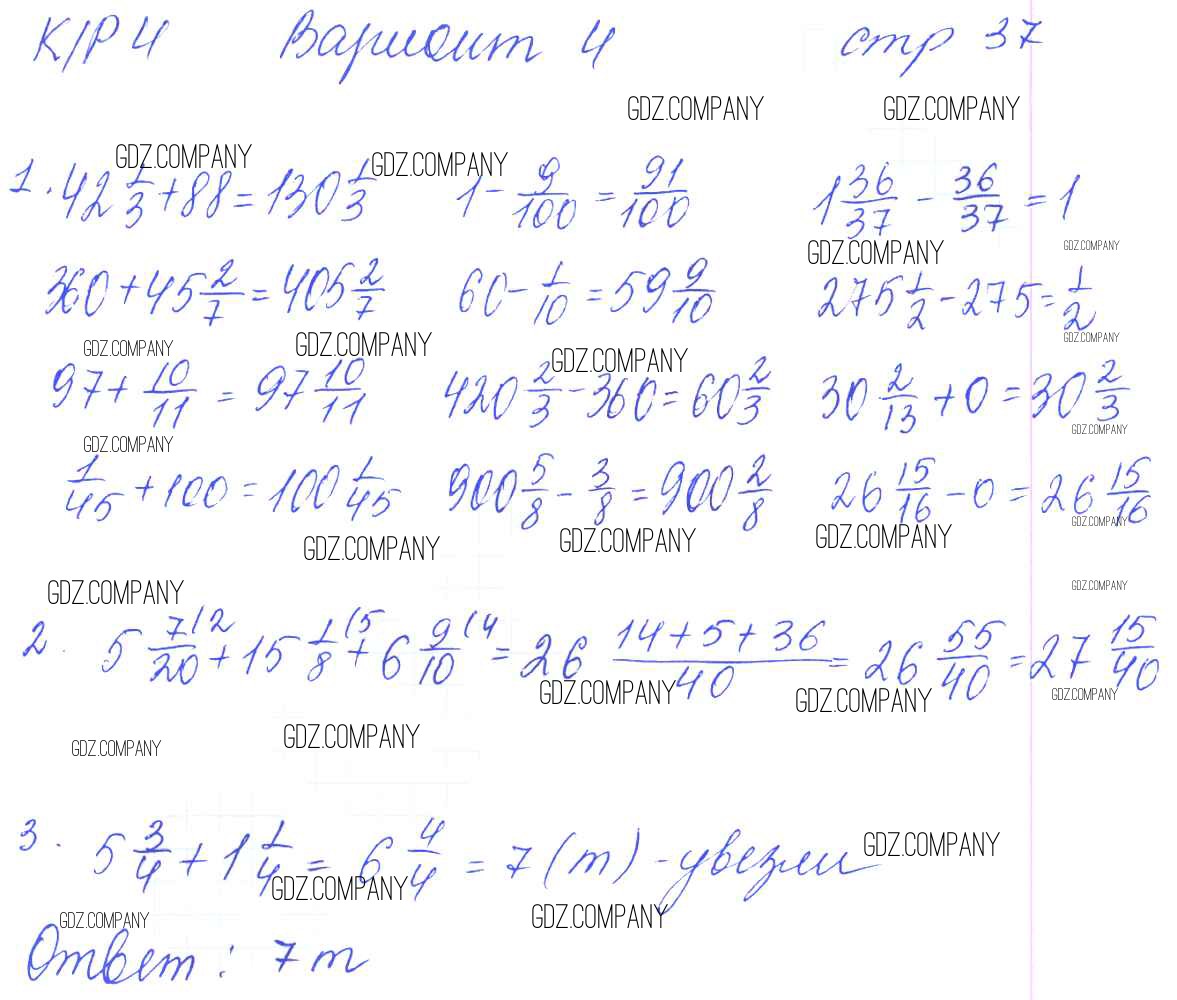 К/Р 4 Вариант 4 стр 37
GDZ.COMPANY GDZ.COMPANY
GDZ.COMPANY GDZ.COMPANY
1. 42 1/3 + 88 = 130 1/3 1 - 9/100 = 91/100 1 36/37 - 36/37 = 1
GDZ.COMPANY GDZ.COMPANY
360 + 45 2/7 = 405 2/7 60 - 1/10 = 59 9/10 275 1/2 - 275 = 1/2
GDZ.COMPANY GDZ.COMPANY GDZ.COMPANY GDZ.COMPANY
97 + 10/11 = 97 10/11 420 2/3 - 360 = 60 2/3 30 2/13 + 0 = 30 2/3
GDZ.COMPANY GDZ.COMPANY
1/45 + 100 = 100 1/45 900 5/8 - 3/8 = 900 2/8 26 15/16 - 0 = 26 15/16
GDZ.COMPANY GDZ.COMPANY GDZ.COMPANY GDZ.COMPANY
GDZ.COMPANY GDZ.COMPANY
2. 5 7(2/20 + 15 1(5/8 + 6 9(4/10 = 26 14+5+36/40 = 26 55/40 = 27 15/40
GDZ.COMPANY GDZ.COMPANY GDZ.COMPANY
GDZ.COMPANY GDZ.COMPANY
3. 5 3/4 + 1 1/4 = 6 4/4 = 7 (т) - увезли GDZ.COMPANY
GDZ.COMPANY
GDZ.COMPANY GDZ.COMPANY
Ответ: 7 т